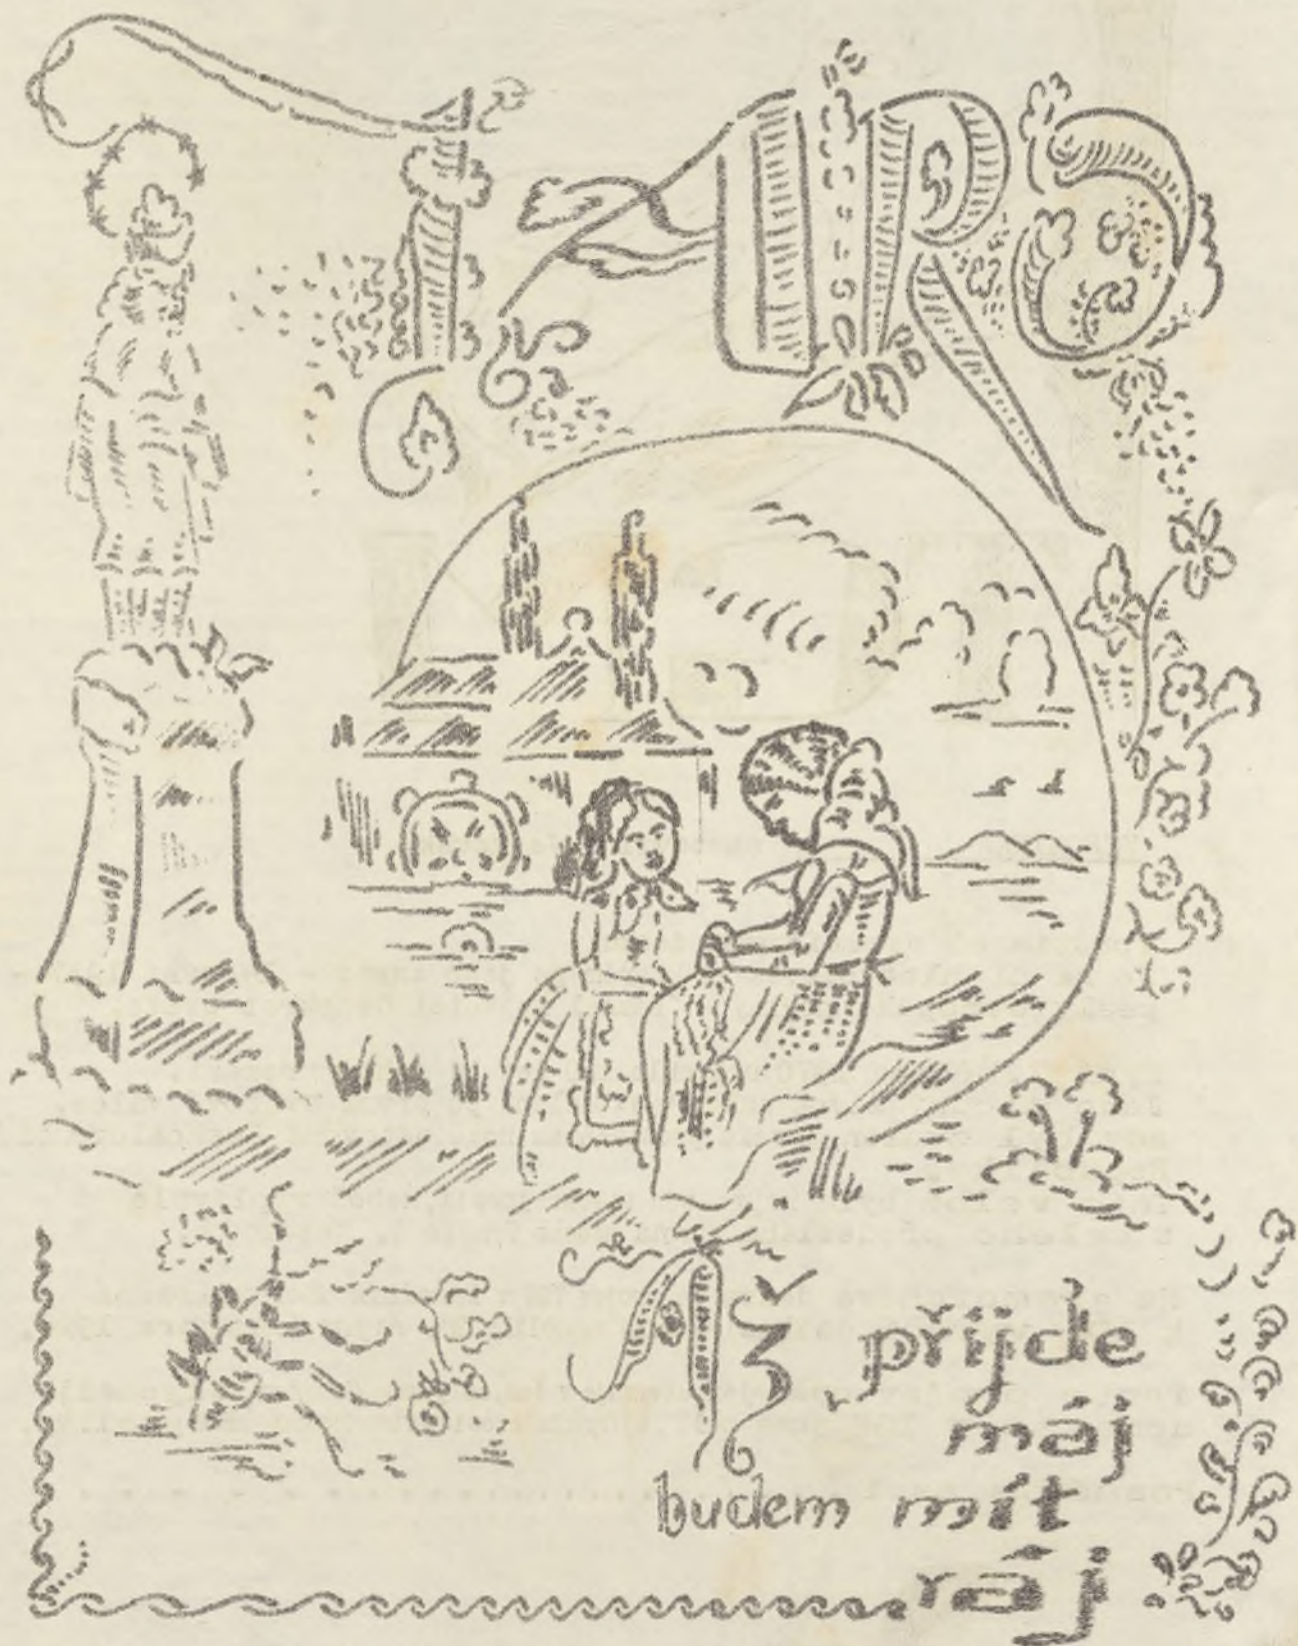 JARO
AŽ přijde
máj
budem mít
ráj